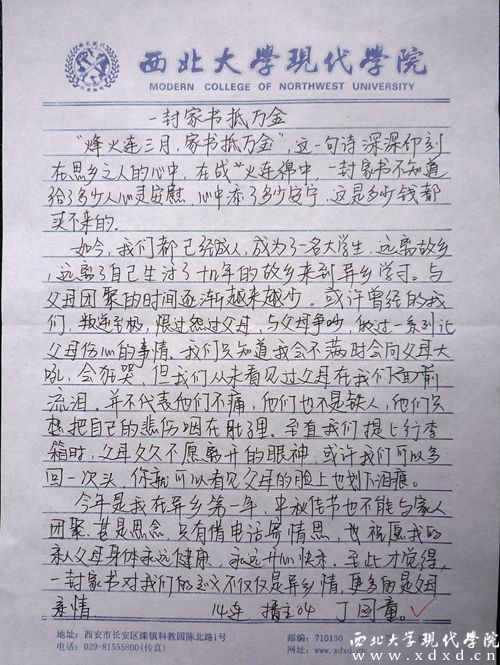 西北大学現代学院
MODERN COLLEGE OF NORTHWEST UNIVERSITY
一封家书抵万金
“烽火连三月,家书抵万金”,这一句诗深深印刻
在思乡之人的心中,在战火连绵中,一封家书不知道
给了多少人心灵安慰,心中添了多少安宁,这是多少钱都
买不来的.
如今,我们都已经成人,成为了一名大学生,远离故乡,
远离了自己生活了十几年的故乡来到异乡学习。与
父母团聚的时间逐渐越来越少。或许曾经的我
们,叛逆至极,恨过怨过父母,与父母争吵,做过一系列让
父母伤心的事情、我们只知道我会不满时会向父母大
吼,会狂哭,但我们从未看见过父母在我们面前
流泪。并不代表他们不痛,他们也不是铁人,他们只
想把自己的悲伤咽在肚子里。至直我们提上行李
箱时,父母久久不愿离开的眼神,或许我们可以多
回一次头,你就可以看见父母的脸上也划下泪痕。
今年是我在异乡第一年,中秋佳节也不能与家人
团聚,甚是思念,只有借电话寄情思,也祝愿我的
亲人父母身体永远健康,永远开心快乐.至此才觉得,
一封家书对我们的意义不仅仅是异乡情,更多的是父母
亲情 14连 丁国童。
地址:西安市长安区滦镇科教园陈北路1号 邮编:710130
电话:029-81555800(传真) 网址:www.xdxd.cn
西北大学现代学院
www.xdxd.cn